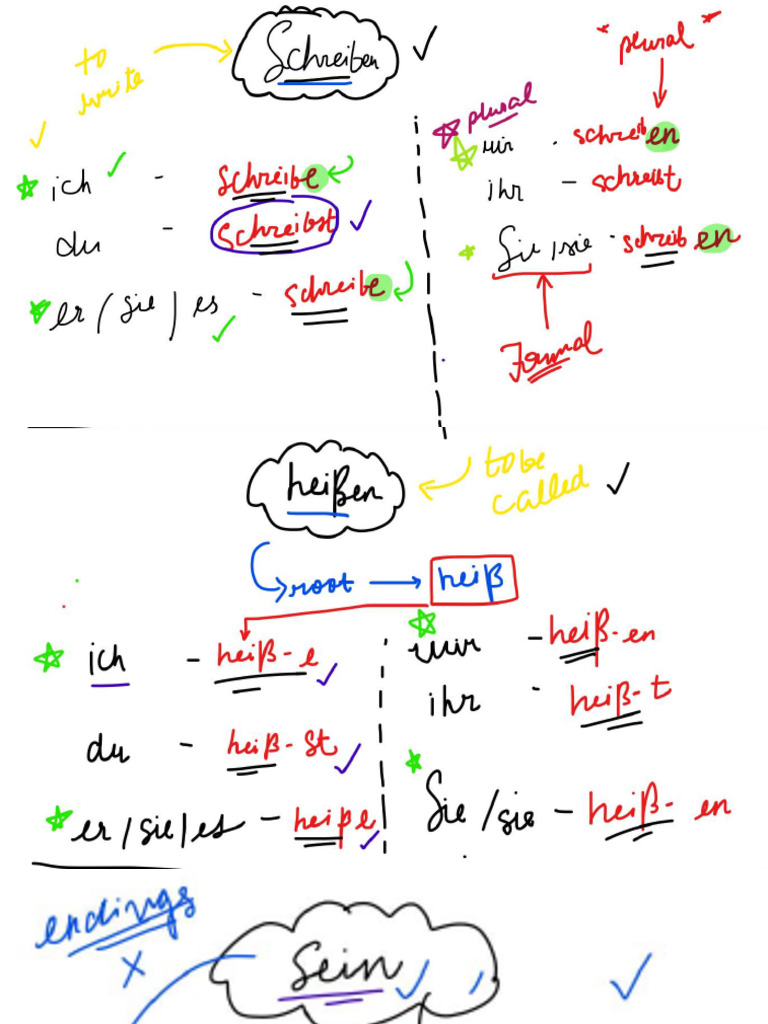 Schreiben
to write
ich - Schreibe
du - Schreibst
er / sie / es - schreibe
* plural *
plural
wir - schreiben
ihr - schreibt
Sie / sie - schreiben
Formal
heißen
to be called
root → heiß
ich - heiß-e
du - heiß-st
er / sie / es - heiße
wir - heiß-en
ihr - heiß-t
Sie / sie - heiß-en
endings
x
Sein